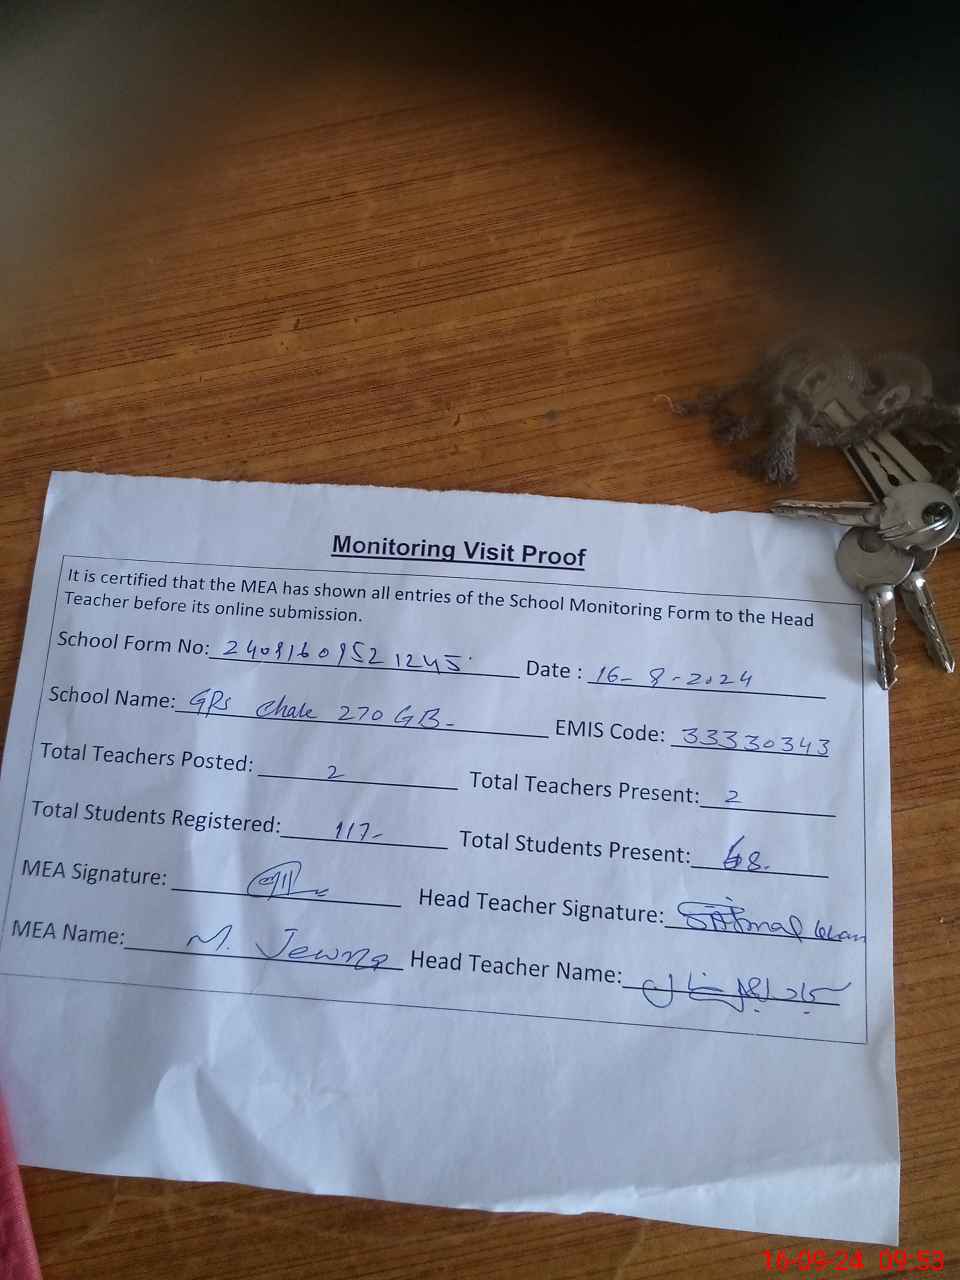 Monitoring Visit Proof
It is certified that the MEA has shown all entries of the School Monitoring Form to the Head
Teacher before its online submission.
School Form No: 24091609521245 Date : 16-8-2024
School Name: GPS Chak 270 GB- EMIS Code: 33330343
Total Teachers Posted: 2 Total Teachers Present: 2
Total Students Registered: 117- Total Students Present: 68.
MEA Signature: Head Teacher Signature:
MEA Name: M. Head Teacher Name:
16-09-24 09:53